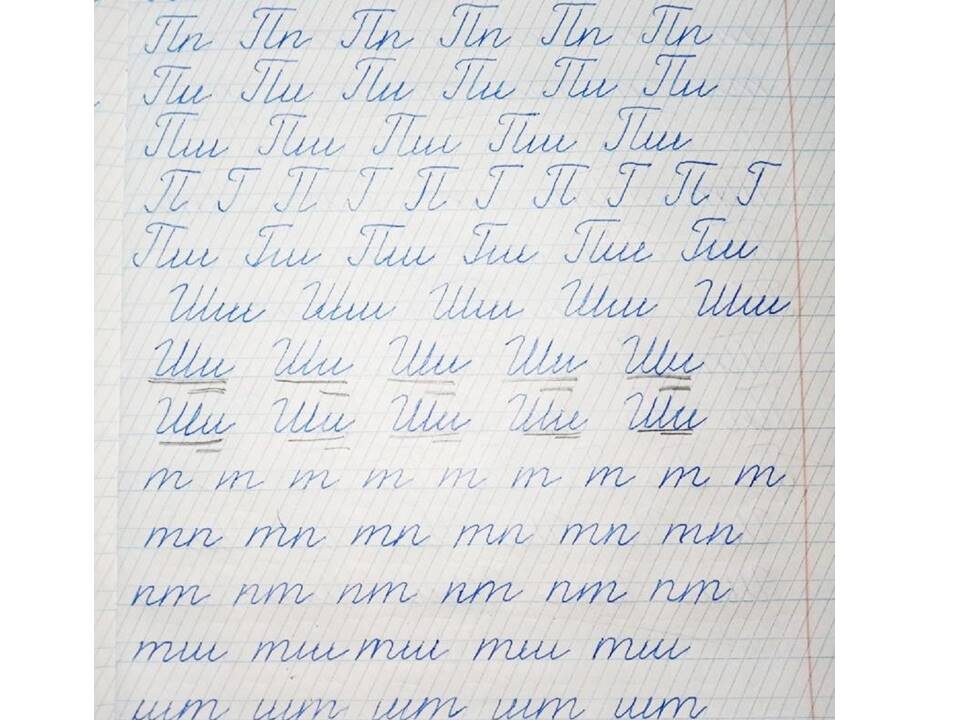 Пп Пп Пп Пп Пп Пп
Пи Пи Пи Пи Пи Пи
Пш Пш Пш Пш Пш
П Г П Г П Г П Г П Г
Пш Гш Пш Гш Пш Гш
Шш Шш Шш Шш Шш
Ши Ши Ши Ши Ши
Ши Ши Ши Ши Ши
т т т т т т т т т
тп тп тп тп тп тп
пт пт пт пт пт пт
тш тш тш тш тш
шт шт шт шт шт